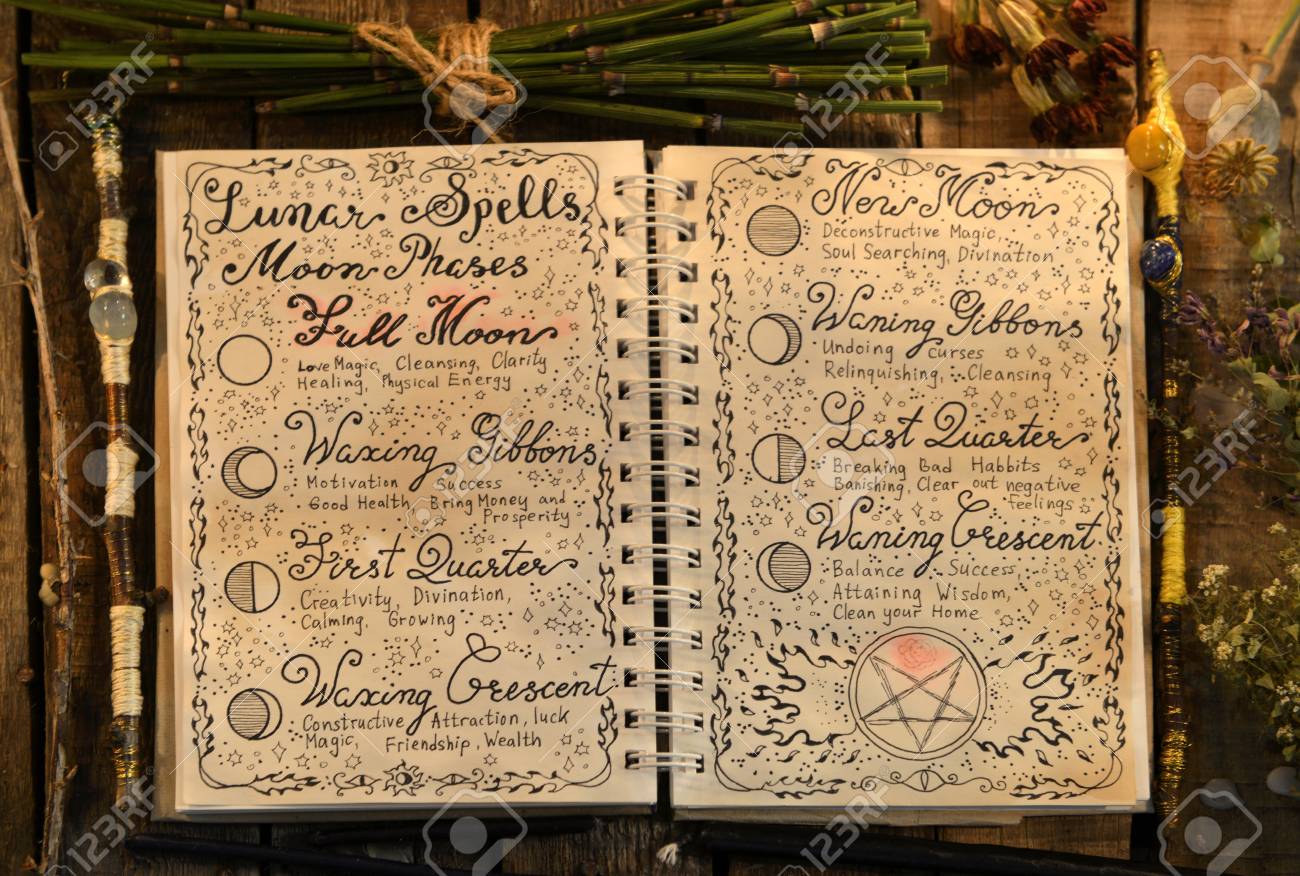 Lunar Spells
Moon Phases
Full Moon
Love Magic, Cleansing, Clarity
Healing, Physical Energy
Waxing Gibbons
Motivation Success
Good Health Bring Money and
Prosperity
First Quarter
Creativity, Divination,
Calming, Growing
Waxing Crescent
Constructive Attraction, luck
Magic, Friendship, Wealth
New Moon
Deconstructive Magic,
Soul Searching, Divination
Waning Gibbons
Undoing curses
Relinquishing, Cleansing
Last Quarter
Breaking Bad Habbits
Banishing, Clear out negative
feelings
Waning Crescent
Balance Success,
Attaining Wisdom,
Clean your Home
123RF
123RF
123RF
123RF
123RF
123RF
123RF
123RF
123RF
123RF
123RF
123RF